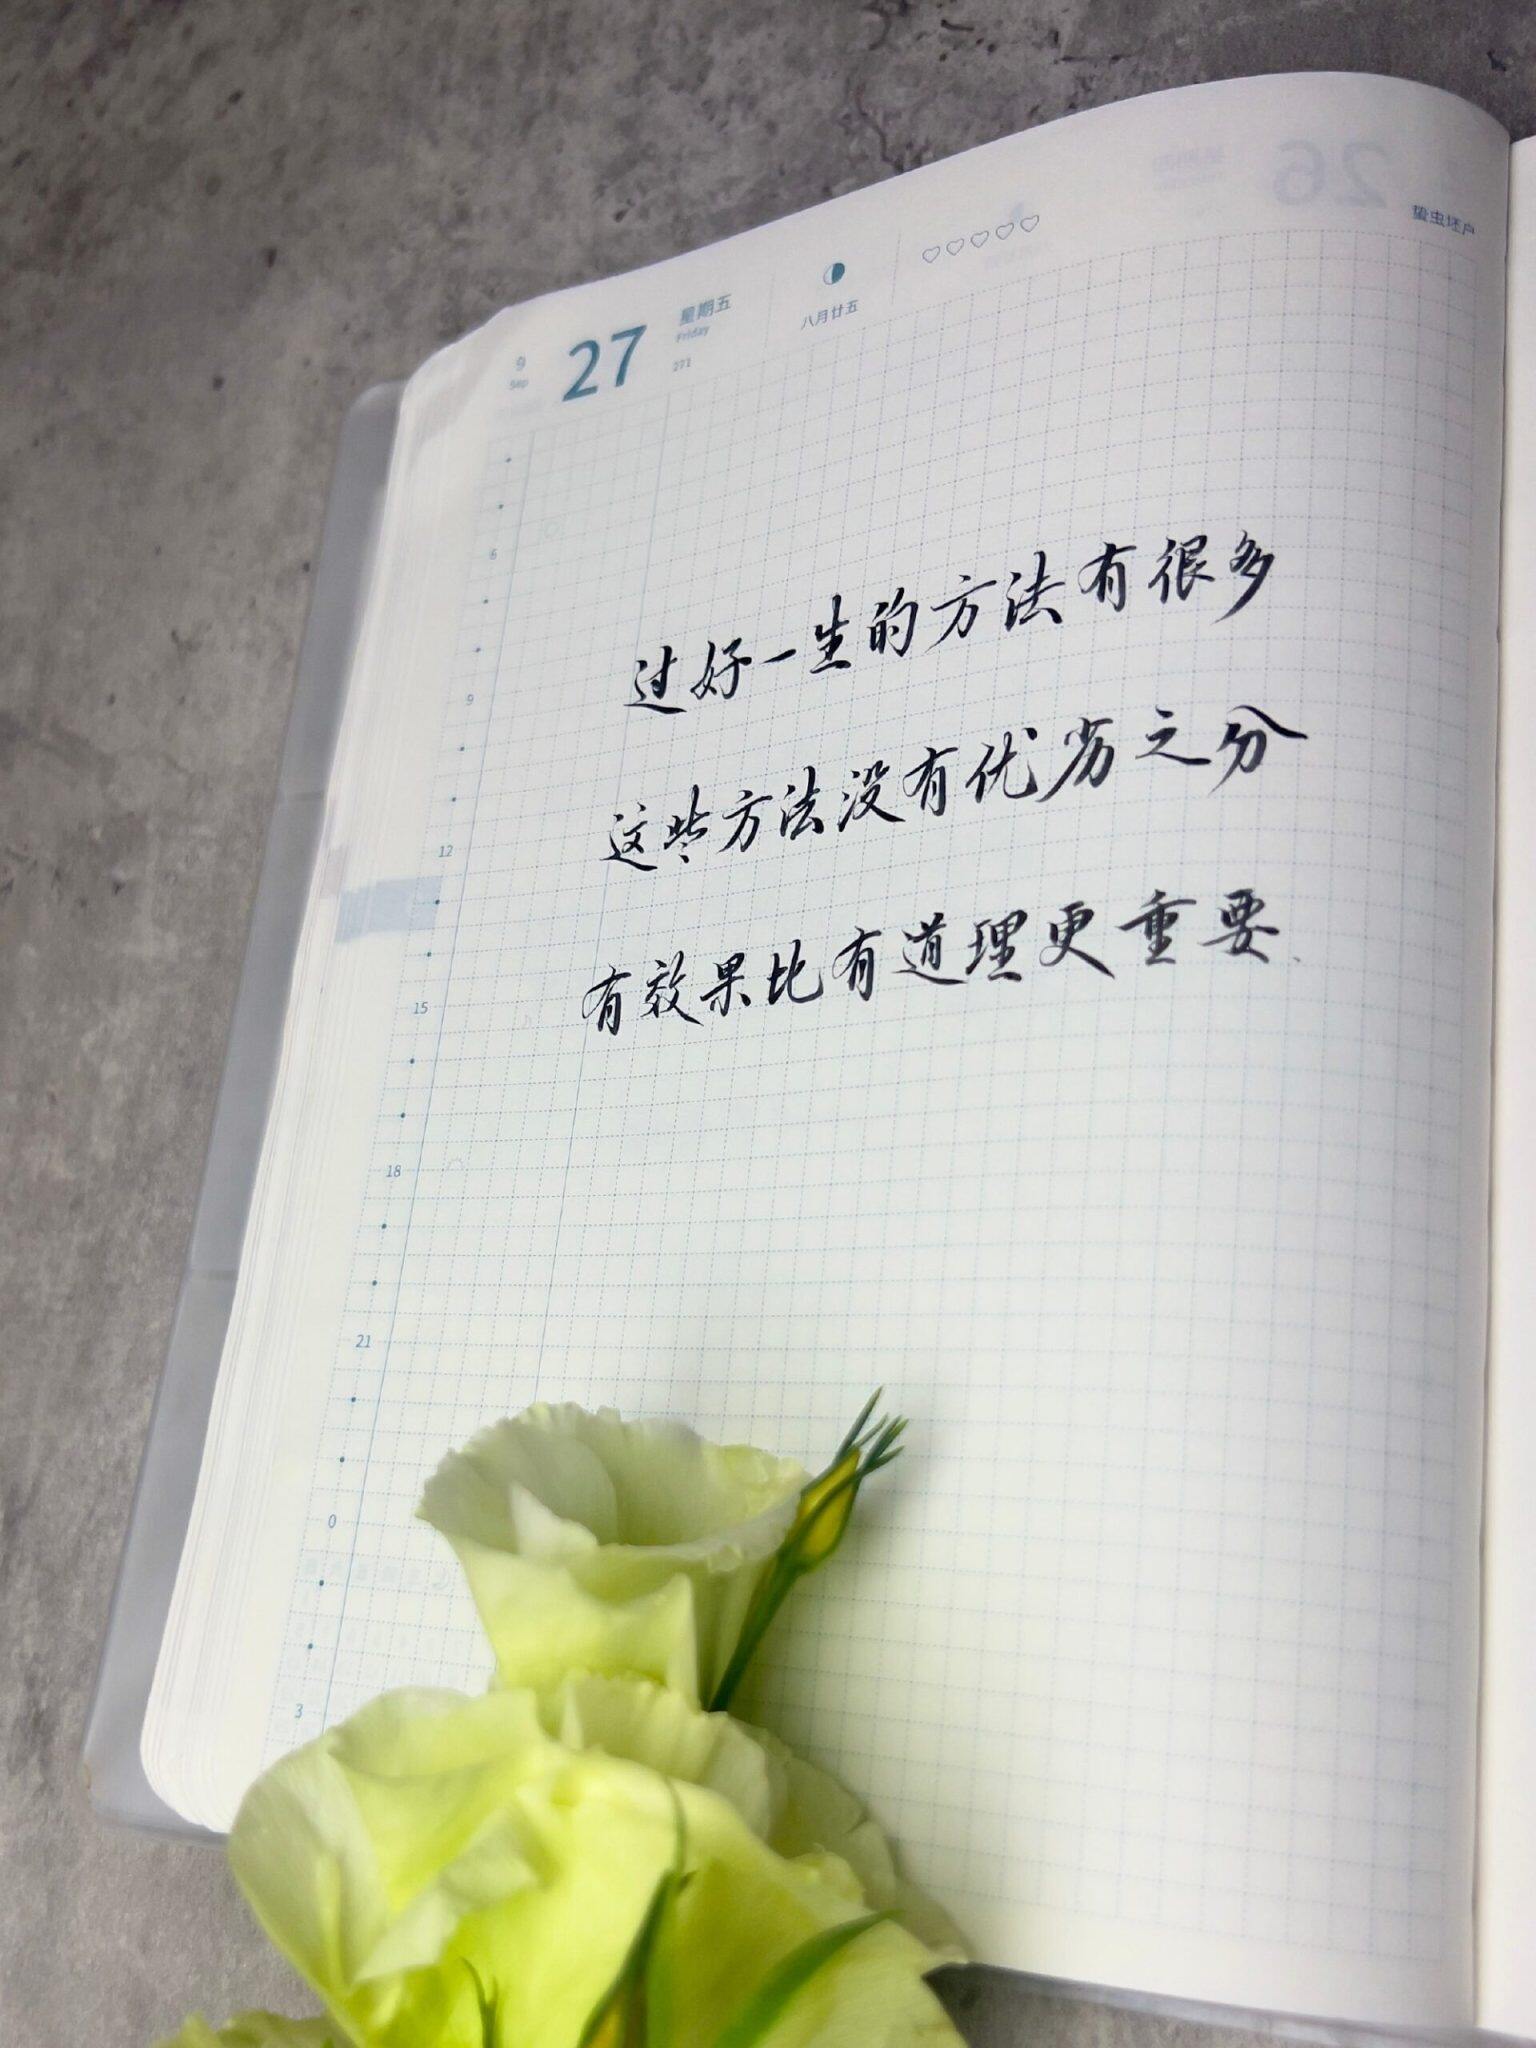 26
蛰虫坯户
9
Sep
27
星期五
Friday
271
八月廿五
过好一生的方法有很多
这些方法没有优劣之分
有效果比有道理更重要、
6
9
12
15
18
21
0
3